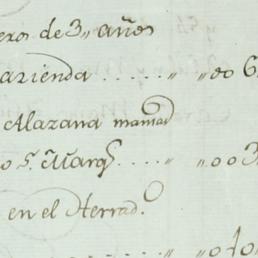 eros de 3,, años
arienda ..... ,, ,,00 6
Alazana mamad
o s.r Marq.s .... ,, ,,003
en el Herrad.o
,, ,,040